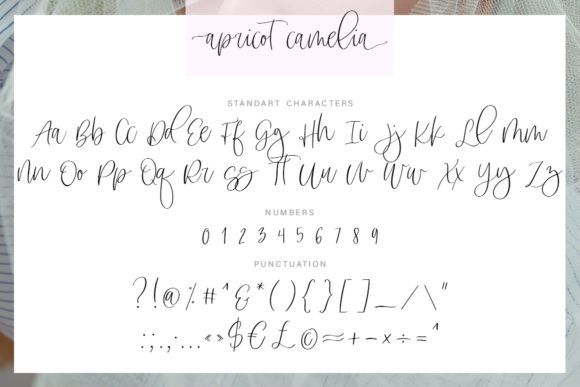 apricot camelia
STANDART CHARACTERS
Aa Bb Cc Dd Ee Ff Gg Hh Ii Jj Kk Ll Mm
Nn Oo Pp Qq Rr Ss Tt Uu Vv Ww Xx Yy Zz
NUMBERS
0 1 2 3 4 5 6 7 8 9
PUNCTUATION
?!@%#^&*(){}[]_/\"
:;.,·...«»$€£©≈+-×÷=^